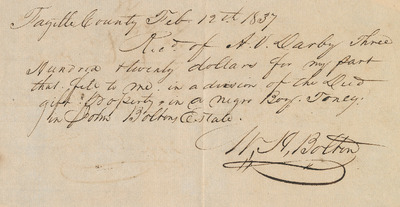 Fayette County Feb. 12th 1837
Recd. of A. V. Darby Three
Hundred & twenty dollars for my part
that fell to me in a division of the Deed
gift Property, in a negro Boy. Toney.
in Johns Boltons Estate.
W. H. Bolton